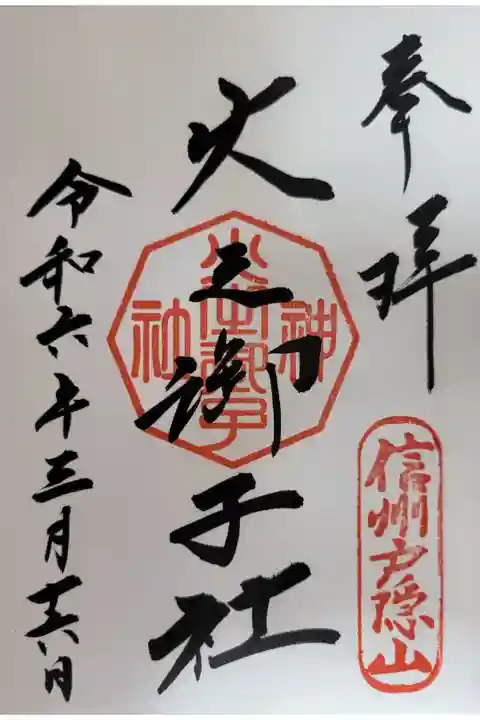 奉拝
信州戸隠山
火之御子社
神
社
令和六年三月十六日